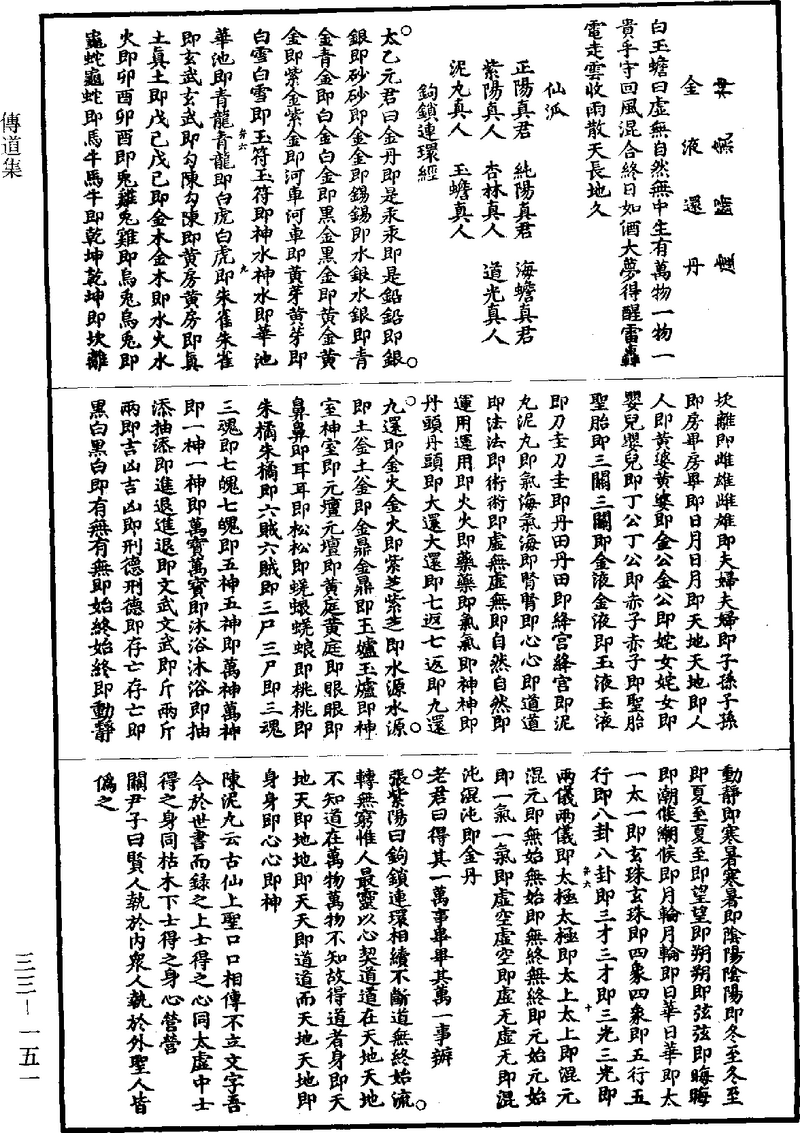 金液還丹
白玉蟾曰虛無自然無中生有萬物一物一
貴乎守回風混合終日如酒大夢得醒雷轟
電走雲收雨散天長地久
仙派
正陽真君 純陽真君 海蟾真君
紫陽真人 杏林真人 道光真人
泥丸真人 玉蟾真人
鉤鎖連環經
太乙元君曰金丹即是汞汞即是鉛鉛即銀
銀即砂砂即金金即錫錫即水銀水銀即青
金青金即白金白金即黑金黑金即黃金黃
金即紫金紫金即河車河車即黃芽黃芽即
白雪白雪即玉符玉符即神水神水即華池
華池即青龍青龍即白虎白虎即朱雀朱雀
即玄武玄武即勾陳勾陳即黃房黃房即真
土真土即戊己戊己即金木金木即水火水
火即卯酉卯酉即兎雞兎雞即烏兎烏兎即
龜蛇龜蛇即馬牛馬牛即乾坤乾坤即坎離
坎離即雌雄雌雄即夫婦夫婦即子孫子孫
即房畢房畢即日月日月即天地天地即人
人即黃婆黃婆即金公金公即姹女姹女即
嬰兒嬰兒即丁公丁公即赤子赤子即聖胎
聖胎即三關三關即金液金液即玉液玉液
即刀圭刀圭即丹田丹田即絳宮絳宮即泥
丸泥丸即氣海氣海即腎腎即心心即道道
即法法即術術即虛無虛無即自然自然即
運用運用即火火即藥藥即氣氣即神神即
丹頭丹頭即大還大還即七返七返即九還
九還即金火金火即紫芝紫芝即水源水源
即土釜土釜即金鼎金鼎即玉爐玉爐即神
室神室即元壇元壇即黃庭黃庭即眼眼即
鼻鼻即耳耳即松松即蜣蜋蜣蜋即桃桃即
朱橘朱橘即六賊六賊即三尸三尸即三魂
三魂即七魄七魄即五神五神即萬神萬神
即一神一神即萬寶萬寶即沐浴沐浴即抽
添抽添即進退進退即文武文武即斤兩斤
兩即吉凶吉凶即刑德刑德即存亡存亡即
黑白黑白即有無有無即始終始終即動靜
動靜即寒暑寒暑即陰陽陰陽即冬至冬至
即夏至夏至即望望即朔朔即弦弦即晦晦
即潮候潮候即月輪月輪即日華日華即太
一太一即玄珠玄珠即四象四象即五行五
行即八卦八卦即三才三才即三光三光即
兩儀兩儀即太極太極即太上太上即混元
混元即無始無始即無終無終即元始元始
即一氣一氣即虛空虛空即虛无虛无即混
沌混沌即金丹
老君曰得其一萬事畢畢其萬一事辦
張紫陽曰鉤鎖連環相續不斷道無終始流
轉無窮惟人最靈以心契道道在天地天地
不知道在萬物萬物不知故得道者身即天
地天即地地即天天即道道而天地天地即
身身即心心即神
陳泥丸云古仙上聖口口相傳不立文字吾
今於世書而錄之上士得之心同太虛中士
得之身同枯木下士得之身心營營
關尹子曰賢人執於內衆人執於外聖人皆
僞之
傳道集
三三－一五一